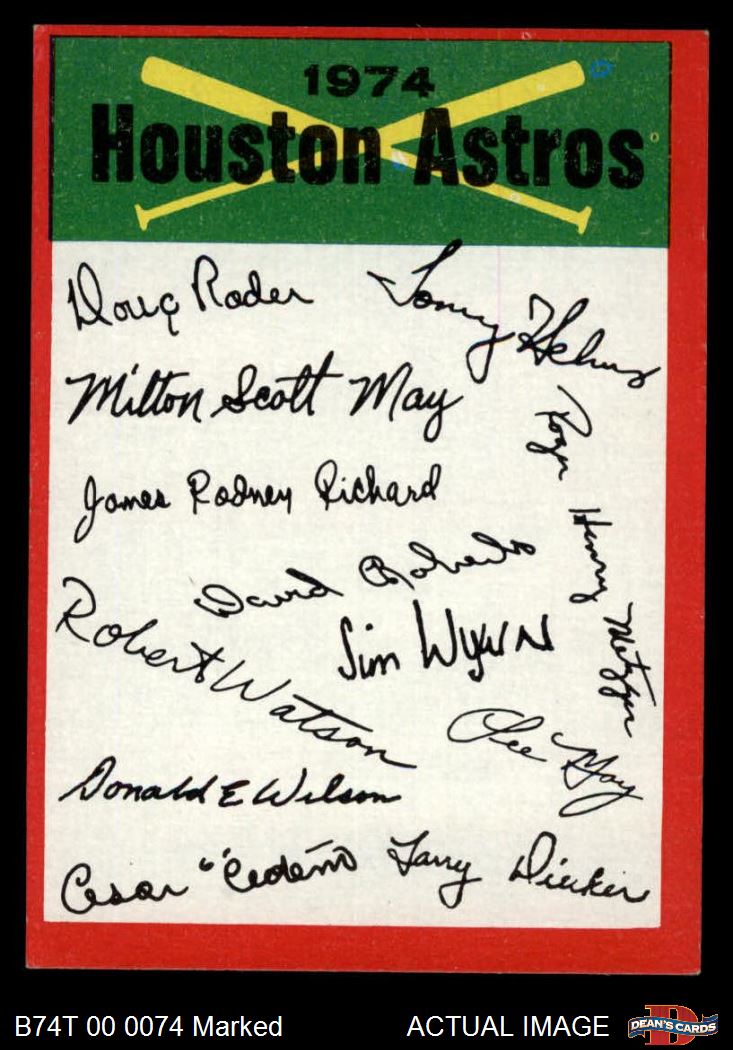 1974
Houston Astros
Doug Rader
Tommy Helms
Milton Scott May
Roger Henry Metzger
James Rodney Richard
David Roberts
Robert Watson
Jim Wynn
Lee May
Donald E Wilson
Cesar "Cedeño
Larry Dierker
B74T 00 0074 Marked
ACTUAL IMAGE
D
DEAN'S CARDS